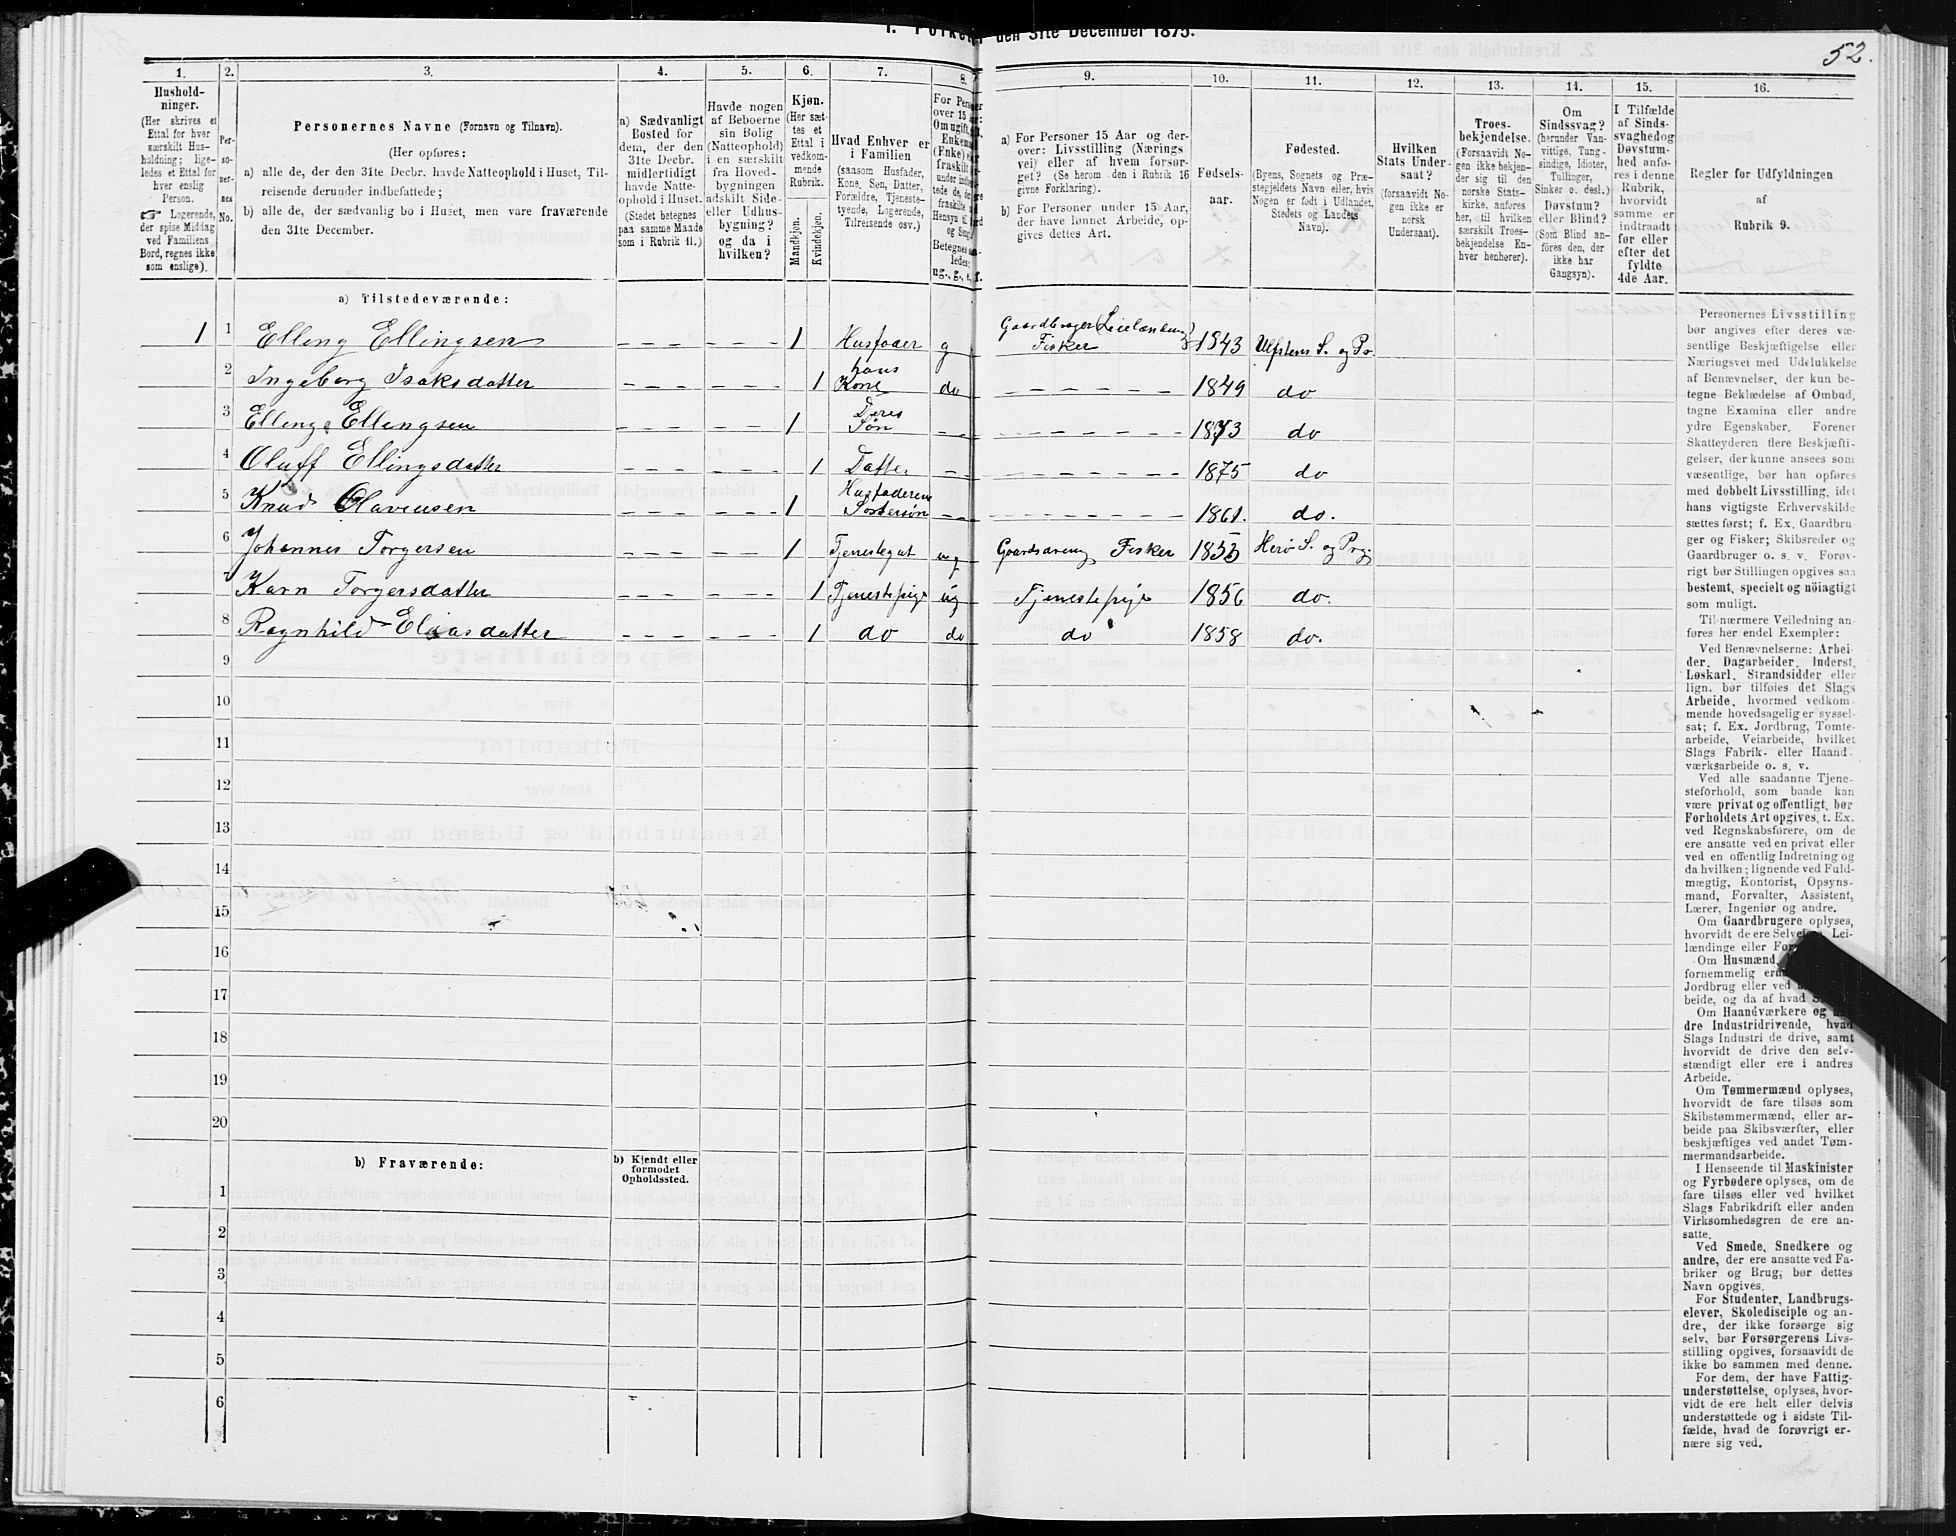 1. Folketal den 31te December 1875.
52.
1.
2.
3.
4.
5.
6.
7.
8.
9.
10.
11.
12.
13.
14.
15.
16.
Hushold-
ninger.
(Her skrives et
Ettal for hver
særskilt Hus-
holdning; lige-
ledes et Ettal for
hver enslig
Person.
☞ Logerende,
der spise Middag
ved Familiens
Bord, regnes ikke
som enslige).
Per-
so-
ner-
nes
No.
Personernes Navne (Fornavn og Tilnavn).
(Her opføres:
a) alle de, der den 31te Decbr. havde Natteophold i Huset, Til-
reisende derunder indbefattede;
b) alle de, der sædvanlig bo i Huset, men vare fraværende
den 31te December.
a) Sædvanligt
Bosted for
dem, der den
31te Decbr.
midlertidigt
havde Natte-
ophold i Huset.
(Stedet betegnes
paa samme Maade
som i Rubrik 11.)
Havde nogen
af Beboerne
sin Bolig
(Natteophold)
i en særskilt
fra Hoved-
bygningen
adskilt Side-
eller Udhus-
bygning?
og da i
hvilken?
Kjøn.
(Her sæt-
tes et
Ettal i
vedkom-
mende
Rubrik.
Mandkjøn.
Kvindekjøn.
Hvad Enhver er
i Familien
(saasom Husfader,
Kone, Søn, Datter,
Forældre, Tjeneste-
tyende, Logerende,
Tilreisende osv.)
a) For Personer 15 Aar og der-
over: Livsstilling (Nærings
vei) eller af hvem forsør-
get? (Se herom den i Rubrik 16
givne Forklaring).
b) For Personer under 15 Aar,
der have lønnet Arbeide, op-
gives dettes Art.
Fødsels-
aar.
Fødested.
(Byens, Sognets og Præ-
stegjeldets Navn eller, hvis
Nogen er født i Udlandet,
Stedets og Landets
Navn).
Hvilken
Stats Under-
saat?
(forsaavidt No-
gen ikke er
norsk
Undersaat).
Troes-
bekjendelse.
(Forsaavidt No-
gen ikke bekjen-
der sig til den
norske Stats-
kirke, anføres
her, til hvilken
særskilt Troes-
bekjendelse En-
hver henhører).
Om
Sindssvag?
(herunder Van-
vittige, Tung-
sindige, Idioter,
Tullinger,
Sinker o. desl.)
Døvstum?
eller Blind?
(Som Blind an-
føres den, der
ikke har
Gangsyn).
I Tilfælde
af Sinds-
svaghed og
Døvstum-
hed anfø-
res i denne
Rubrik,
hvorvidt
samme er
indtraadt
før eller
efter det
fyldte
4de Aar.
Regler for Udfyldningen
af
Rubrik 9.
a) Tilstedeværende:
1 1 Elling Ellingsen 1 Husfader g Gaardbruger (Leilænding) Fisker 1843 Ulfstens S. og Pr.
2 Ingeborg Isaksdatter 1 hans Kone do 1849 do
3 Elling Ellingsen 1 Deres Søn 1873 do
4 Oluff Ellingsdatter 1 Datter 1875 do
5 Knud Olavensen 1 Husfaderens Søstersøn 1861. do.
6 Johannes Torgersen 1 Tjenestegut ug Fisker Herø S. og Prg.
7 Karn Torgersdatter 1 Tjenestepige ug Tjenestepige 1856 do.
8 Ragnhild Eliasdatter 1 do do do 1858 do.
9
10
11
12
13
14
15
16
17
18
19
20
b) Fraværende:
b) Kjendt eller
formodet
Opholdssted.
1
2
3
4
5
6
Personernes Livsstilling
bør angives efter deres væ-
sentlige Beskjæftigelse eller
Næringsvei med Udelukkelse
af Benævnelser, der kun be-
tegne Beklædelse af Ombud,
tagne Examina eller andre
ydre Egenskaber. Forener
Skatteyderen flere Beskjæfti-
gelser, der kunne ansees som
væsentlige, bør han opføres
med dobbelt Livsstilling, idet
hans vigtigste Erhvervskilde
sættes først; f. Ex. Gaardbru-
ger og Fisker; Skibsreder og
Gaardbruger o. s. v. Forøv-
rigt bør Stillingen opgives saa
bestemt, specielt og nöiagtigt
som muligt.
Til nærmere Veiledning an-
føres her endel Exempler:
Ved Benævnelserne: Arbei-
der, Dagarbeider, Inderst,
Løskarl, Strandsidder eller
lign. bør tilføies det Slags
Arbeide, hvormed vedkom-
mende hovedsagelig er syssel-
sat; f. Ex. Jordbrug, Tomte-
arbeide, Veiarbeide, hvilket
Slags Fabrik- eller Haand-
værksarbeide o. s. v.
Ved alle saadanne Tjene-
steforhold, som baade kan
være privat og offentligt, bør
Forholdets Art opgives, t. Ex.
ved Regnskabsførere, om de
ere ansatte ved en privat eller
ved en offentlig Indretning og
da hvilken; lignende ved Fuld-
mægtig, Kontorist, Opsyns-
mand, Forvalter, Assistent,
Lærer, Ingeniør og andre.
Om Gaardbrugere oplyses,
hvorvidt de ere Selveiere, Lei-
lændinge eller
Om Husmænd,
fornemmelig
Jordbrug eller ved
beide, og da af hvad
Om Haandværkere og
dre Industridrivende, hvad
Slags Industri de drive, samt
hvorvidt de drive den selv-
stændigt eller ere i andres
Arbeide.
Om Tømmermænd oplyses,
hvorvidt de fare tilsøs som
Skibstømmermænd, eller ar-
beide paa Skibsværfter, eller
beskjæftiges ved andet Tøm-
mermandsarbeide.
I Henseende til Maskinister
og Fyrbødere oplyses, om de
fare tilsøs eller ved hvilket
Slags Fabrikdrift eller anden
Virksomhedsgren de ere an-
satte.
Ved Smede, Snedkere og
andre, der ere ansatte ved Fa-
briker og Brug, bør dettes
Navn opgives.
For Studenter, Landbrugs-
elever, Skoledisciple og an-
dre, der ikke forsørge sig
selv, bør Forsørgerens Livs-
stilling opgives, forsaavidt de
ikke bo sammen med denne.
For dem, der have Fattig-
understøttelse, oplyses, hvor-
vidt de ere helt eller delvis
understøttede og i sidste Til-
fælde, hvad de forøvrigt er-
nære sig ved.